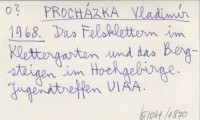 o? PROCHÁZKA Vladimír
1968. Das Felsklettern im
Klettergarten und das Berg-
steigen im Hochgebirge.
Jugendtreffen UIAA.
/1870